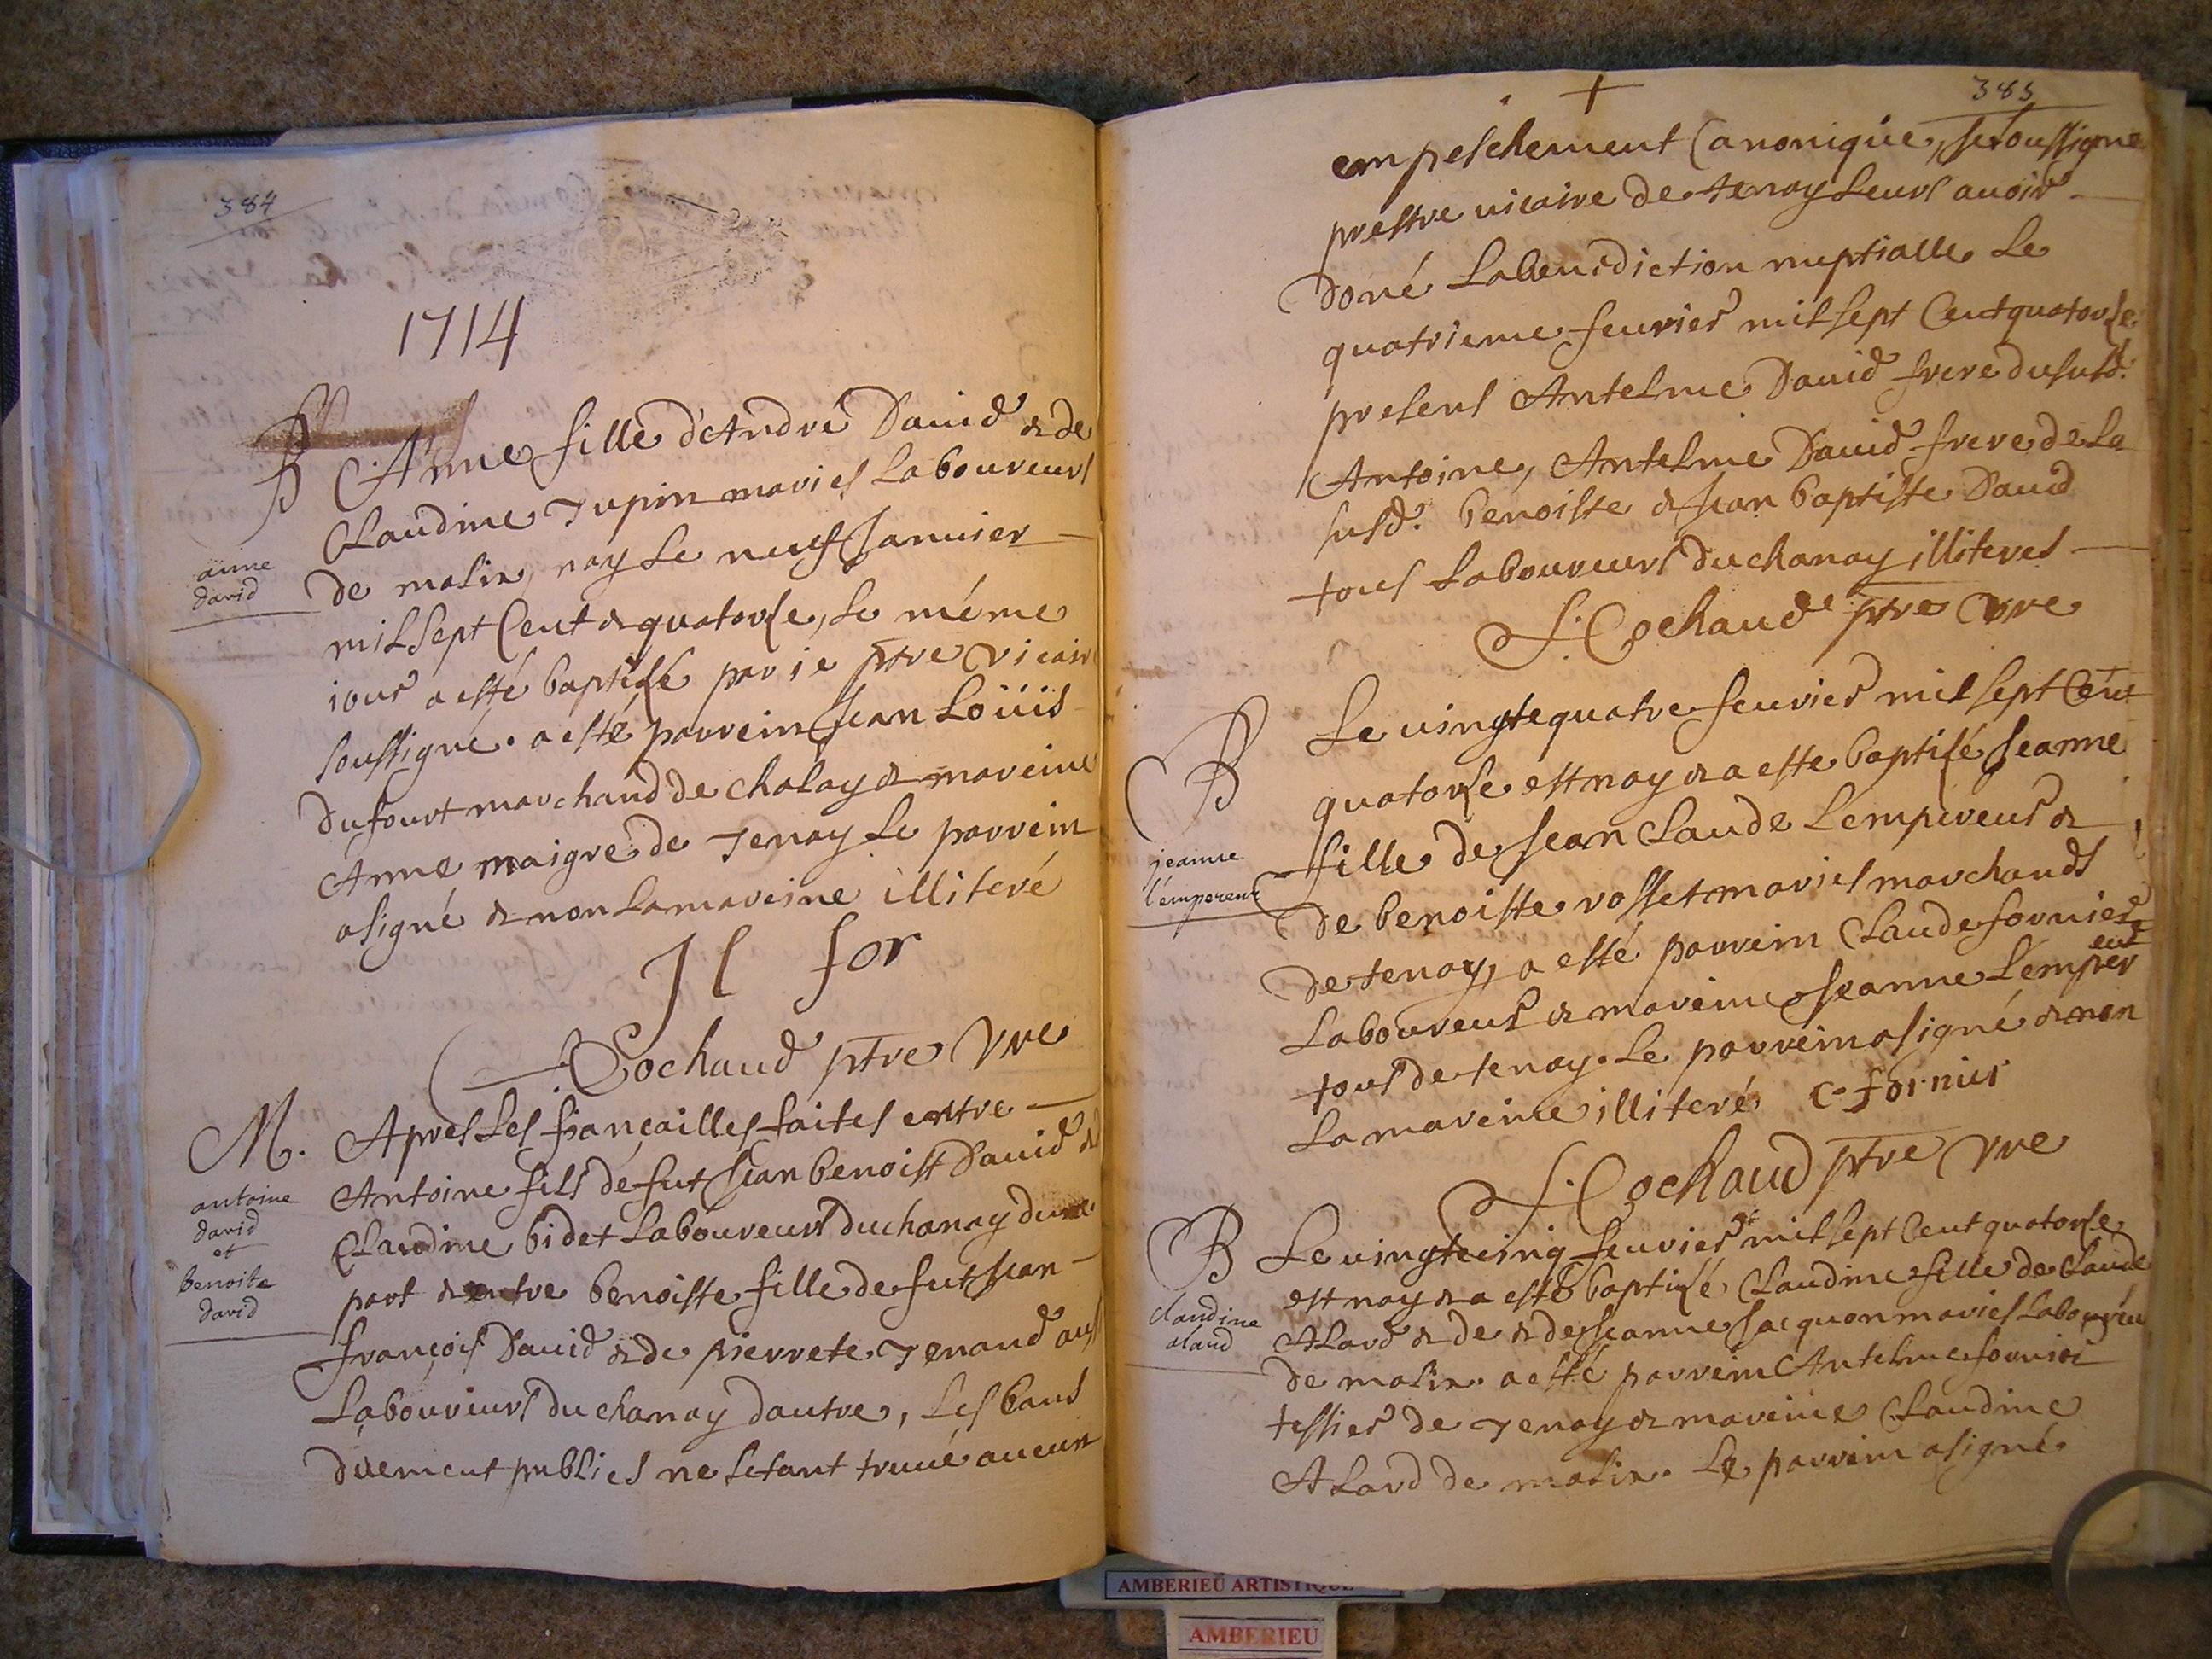 384
1714
B Anne fille d'André Dauid & de
Claudine Jupin mariés Laboureurs
anne
david
de malix, nay le neuf Januier
mil sept Cent & quatorse, le méme
iour a esté baptisé par ie ptre vicaire
soussigné. a esté parrein Jean Loüis
dufourt marchand de chaley & mareine
Anne maigre de Tenay le parrein
asigné & non la mareine illiteré
Jl for
Cochaud ptre vre
M. Apres les fiançailles faites entre
Antoine fils de fut Jean benoist Dauid &
antoine
david
et
benoite
david
Claudine bidet Laboureurs du chanay dune
part & entre benoiste fille de fut Jean
françois Dauid & de pierrete Tenand aussi
Laboureurs du chanay dautre, Les bans
düement publiés ne setant trouué aucun
385
empeschement Canonique, Je soussigné
prestre uicaire de tenay leurs auoir
doné La benediction nuptialle le
quatrieme feurier mil sept Cent quatorse
presens Antelme Dauid frere du susd.
Antoine, Antelme Dauid frere de la
susd. benoiste & Jean baptiste Dauid
tous Laboureurs du chanay illiterés
J. Cochaud ptre vre
B Le uingtequatre feurier mil sept Cent
quatorse est nay & a esté baptisé Jeanne
jeanne
l'empereur
fille de Jean Claude L'empereur &
de benoiste rosset mariés marchands
de tenay, a esté parrein Claude fornier
Laboureur & mareine Jeanne L'empereur
tous de tenay. Le parrein asigné & non
La mareine illiteré C fornier
J. Cochaud ptre vre
B Le uingtecinq feurier mil sept Cent quatorse
est nay & a esté baptisé Claudine fille de Claude
claudine
alard
Alard & de & de Jeanne Jacquon mariés Laboureu
de malix. a esté parrein Antelme fournier
tessier de Tenay & mareine Claudine
Alard de malix. Le parrein asigné
AMBERIEU ARTISTIQUE
AMBERIEU